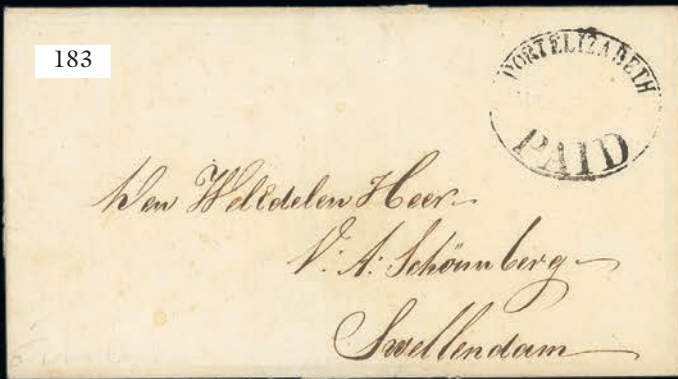 183
PORT ELIZABETH
PAID
Den WelEdelen Heer
V: A: Schönnberg
Swellendam